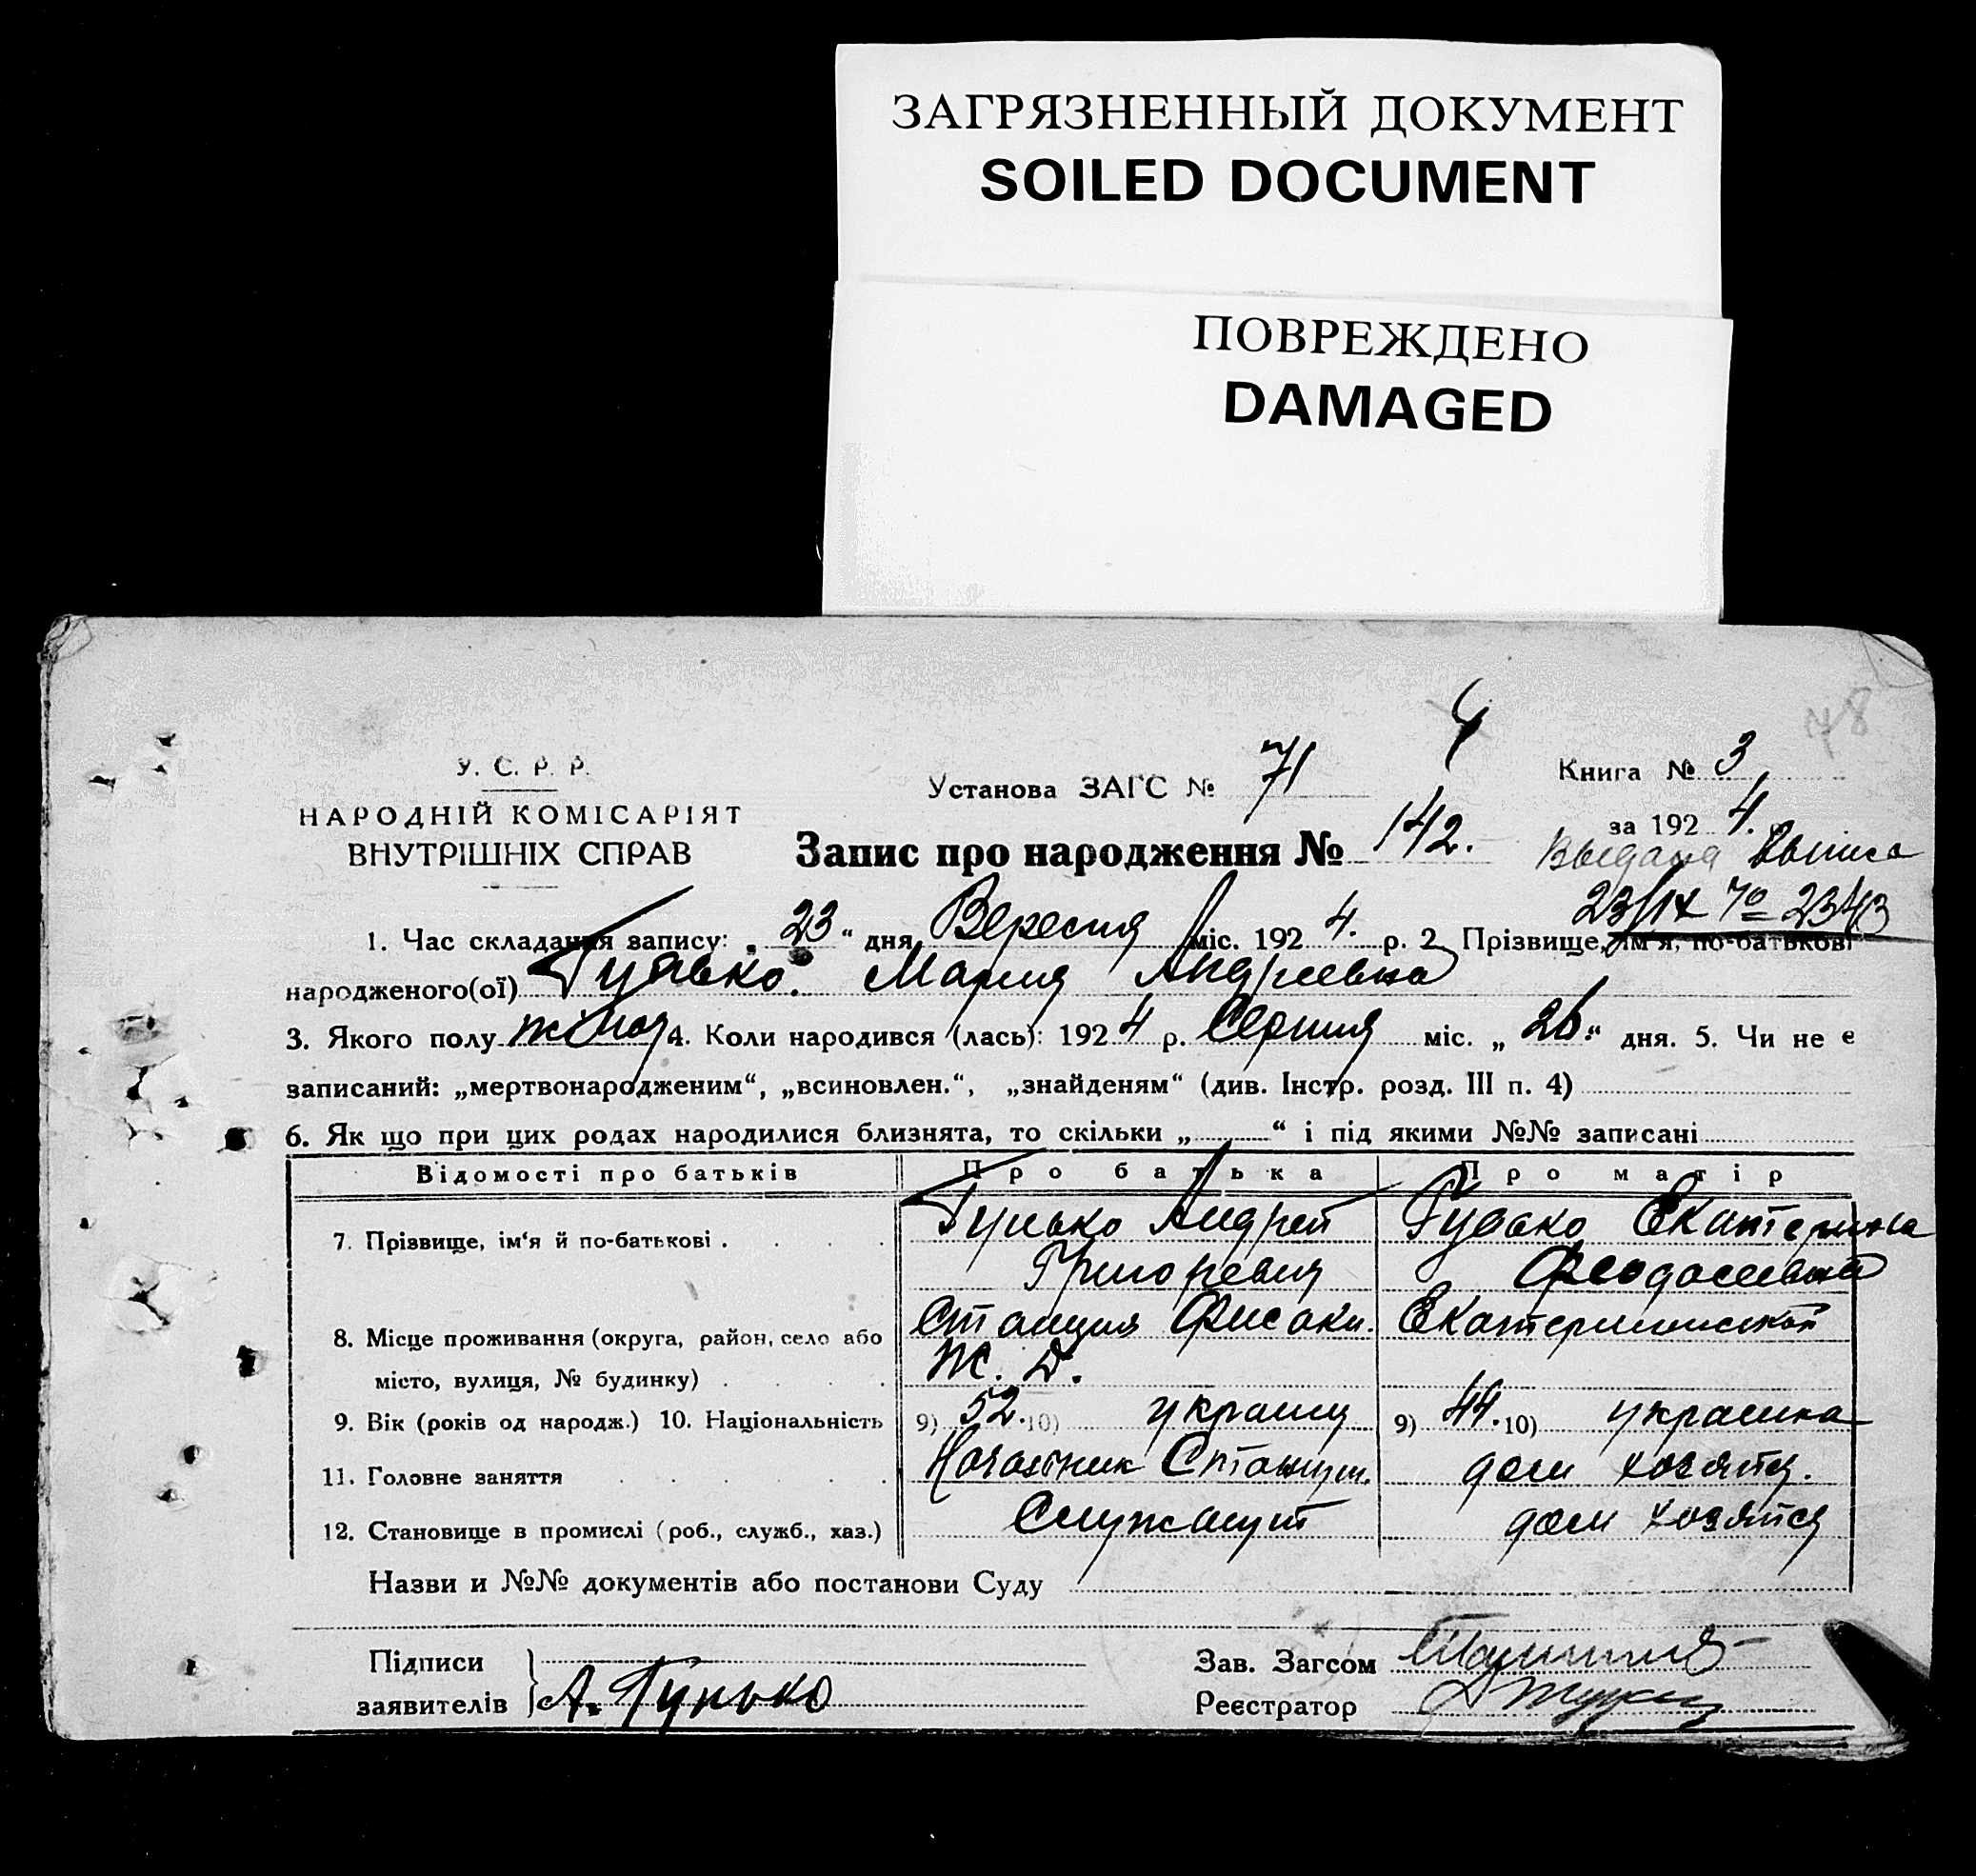 ЗАГРЯЗНЕННЫЙ ДОКУМЕНТ
SOILED DOCUMENT
ПОВРЕЖДЕНО
DAMAGED
48
У. С. Р. Р.
НАРОДНІЙ КОМІСАРІЯТ
ВНУТРІШНІХ СПРАВ
Установа ЗАГС № 71
Книга № 3
за 1924.
Запис про народження № 142.
Выдана
23/IX 70
1. Час складання запису: „23“ дня Вересня міс. 1924. р. 2. Прізвище, ім'я, по-батькові
народженого(ої) Мария Андреевна
3. Якого полу 4. Коли народився (лась): 1924 р. Серпня міс. „26.“ дня. 5. Чи не є
записаний: „мертвонародженим“, „всиновлен.“, „знайденям“ (див. Інстр. розд. III п. 4)
6. Як що при цих родах народилися близнята, то скільки „ “ і під якими №№ записані
Відомості про батьків Про батька Про матір
7. Прізвище, ім'я й по-батькові . . . . Гунько Андрей Екатерина
Феодосиевна
8. Місце проживання (округа, район, село або Станция
місто, вулиця, № будинку) . . . . Ж. Д.
9. Вік (років од народж.) 10. Національність 9) 52. 10) 9) 44. 10) украинка
11. Головне заняття . . . . . Начальник Станции. дом хозяйка.
12. Становище в промислі (роб., служб., хаз.) Служащий дом хозяйка
Назви и №№ документів або постанови Суду
Підписи
заявителів А. Гунько
Зав. Загсом
Реєстратор